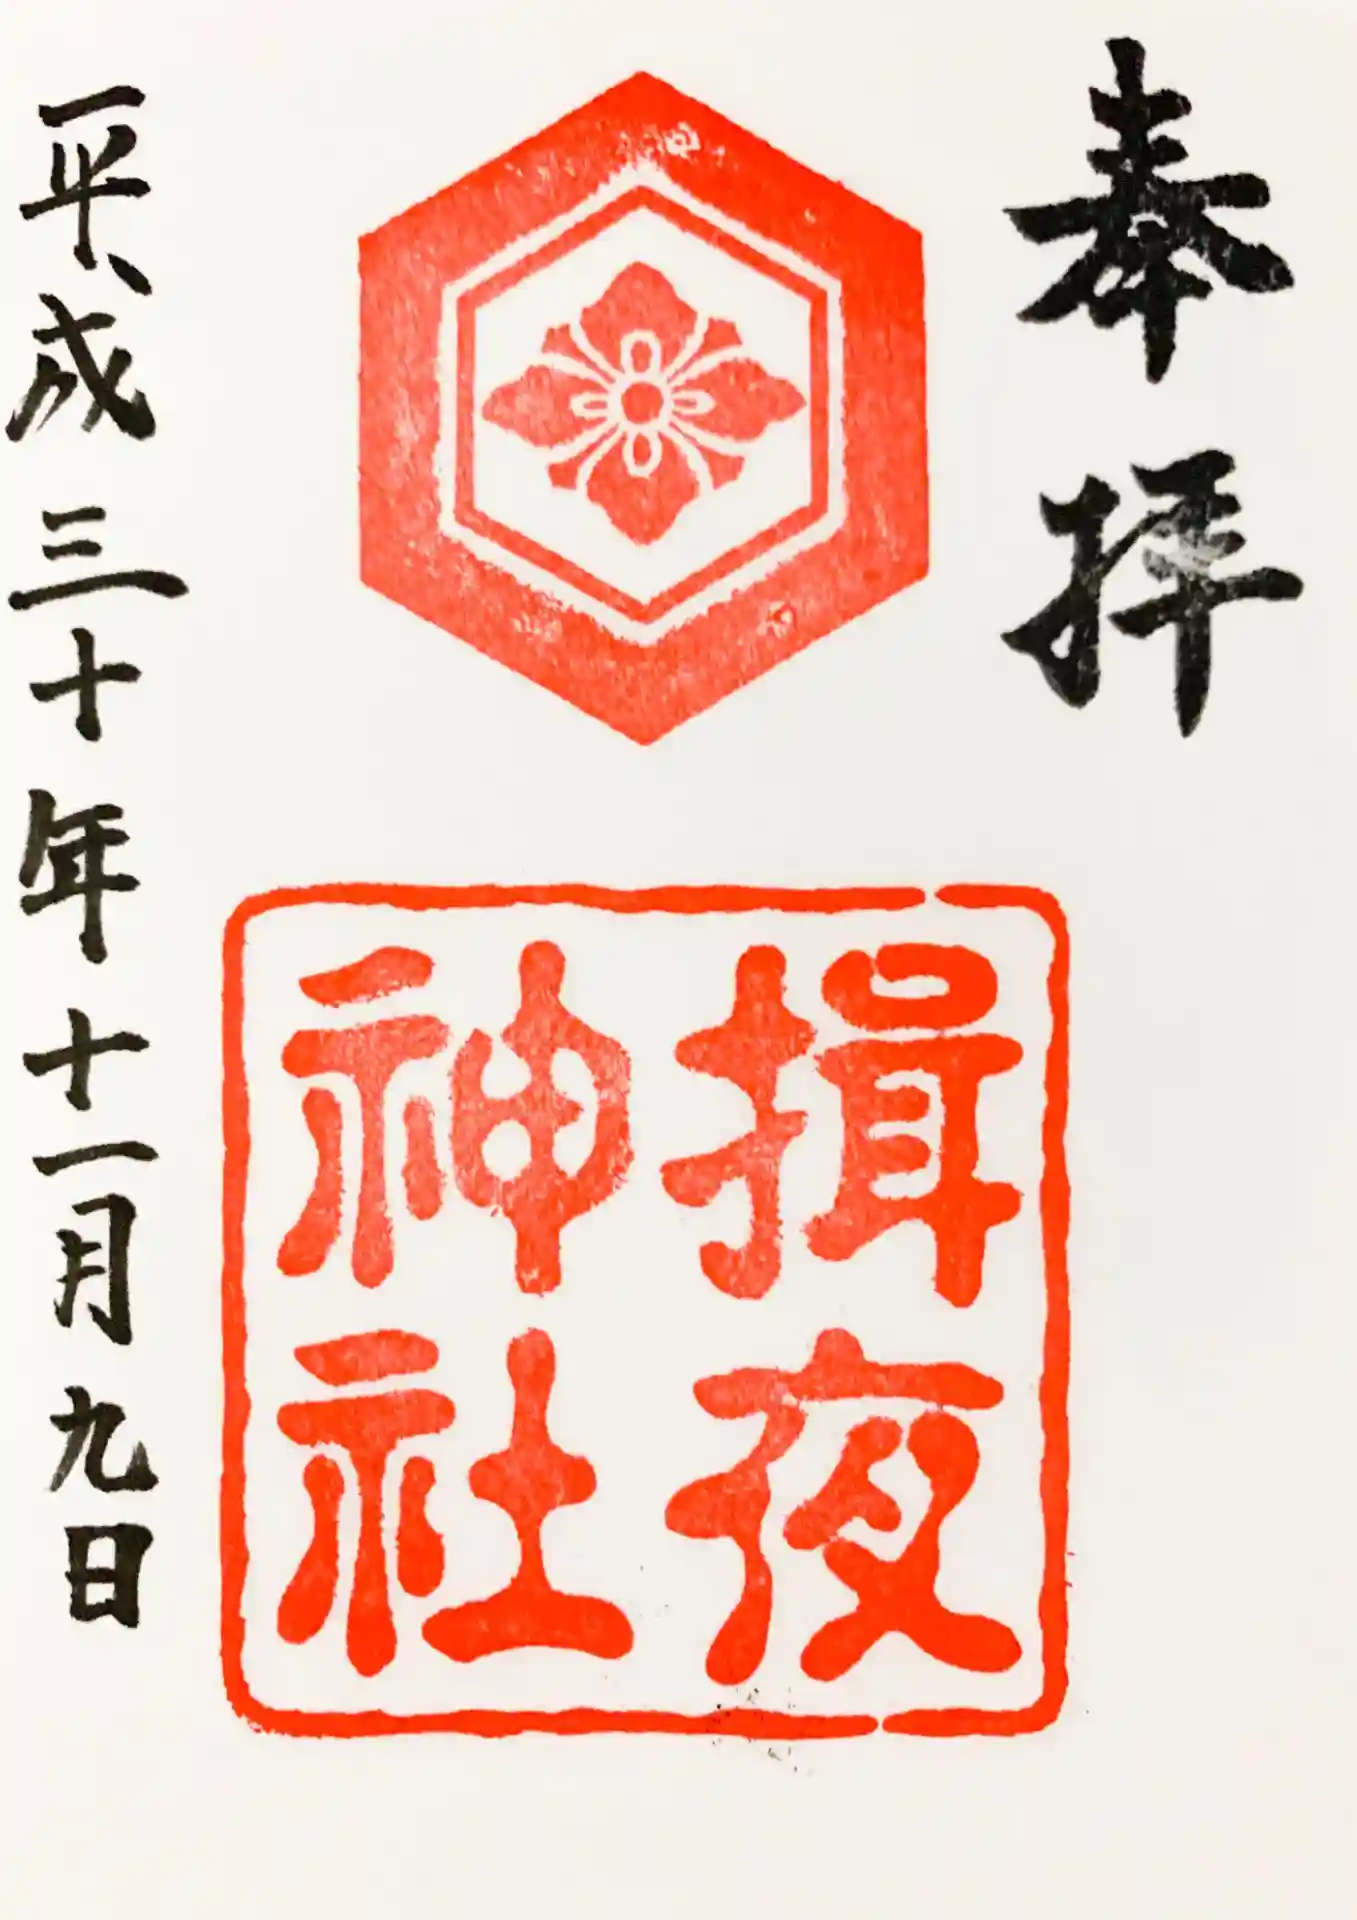 奉拝
揖夜
神社
平成三十年十一月九日